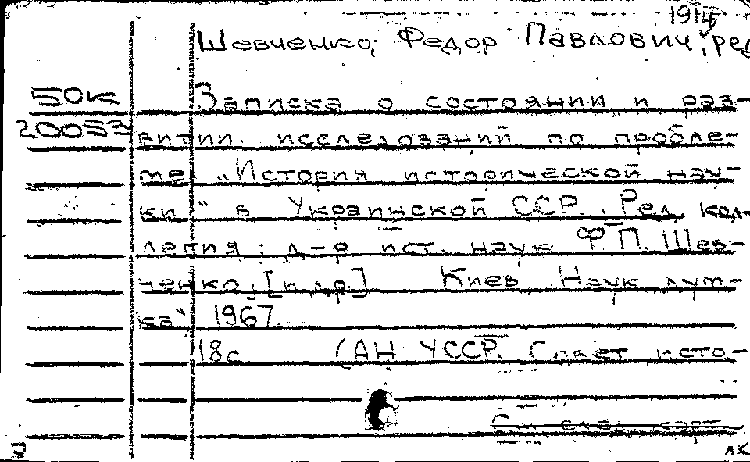 1914
Шевченко, Федор Павлович, ред
50к Записка о состоянии и раз-
20053 витии исследований по пробле-
ме „История исторической нау-
ки" в Украинской ССР. Ред. кол-
легия: д-р ист. наук Ф.П. Шев-
ченко, [и др.] Киев Наук дум-
ка" 1967.
18с (АН УССР. исто-
См. след. карт.